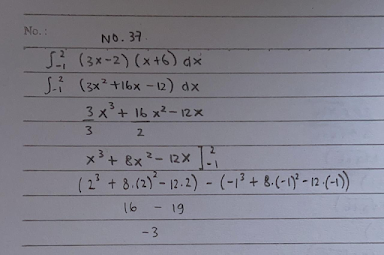 No.:
NO. 37.
∫₋₁² (3x-2) (x+6) dx
∫₋₁² (3x² +16x -12) dx
3/3 x³ + 16/2 x² - 12x
x³ + 8x² - 12x ]₋₁²
(2³ + 8.(2)² - 12.2) - (-1³ + 8.(-1)² - 12.(-1))
16 - 19
-3